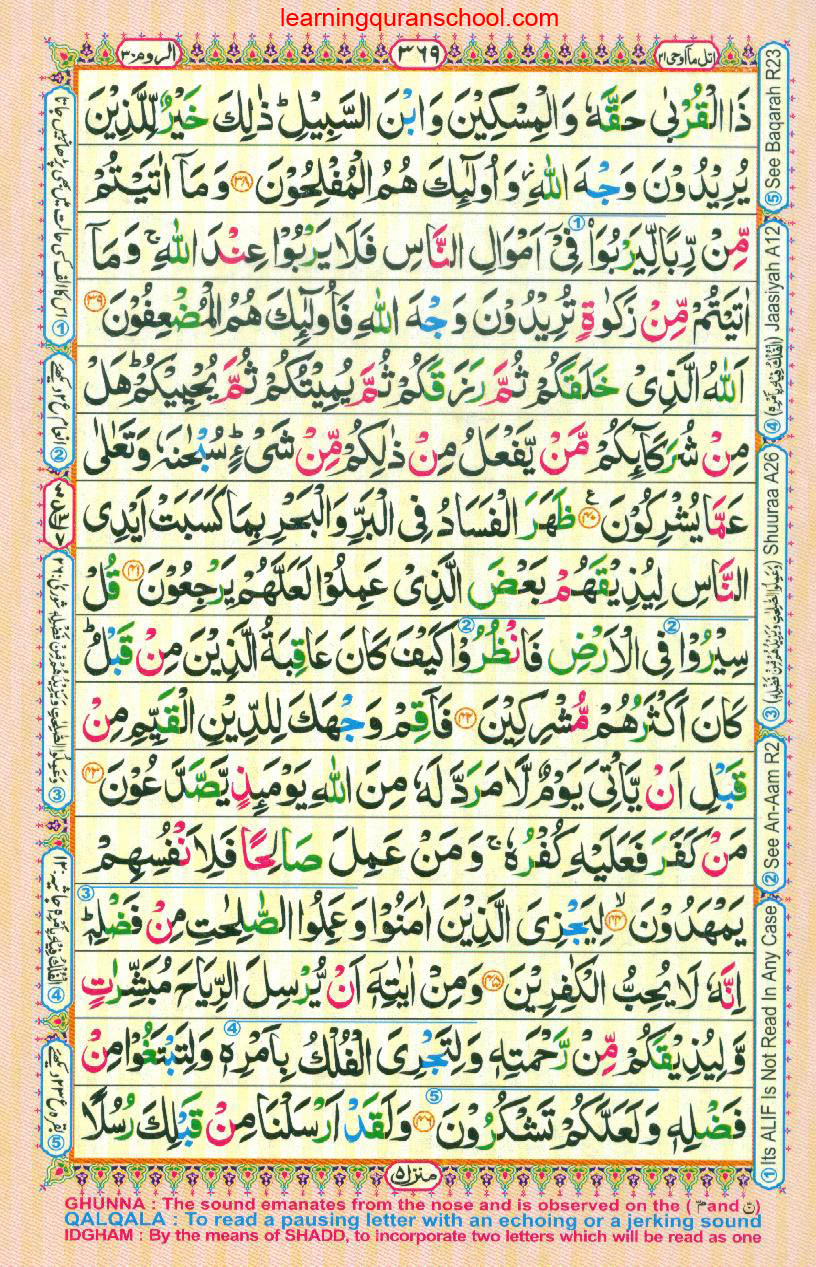 learningquranschool.com
الروم ٣٠
٣٦٩
اتل ما اوحی ٢١
ذَا الْقُرْبٰى حَقَّهٗ وَالْمِسْكِيْنَ وَابْنَ السَّبِيْلِ ؕ ذٰلِكَ خَيْرٌ لِّلَّذِيْنَ
يُرِيْدُوْنَ وَجْهَ اللّٰهِ ؗ وَاُولٰٓئِكَ هُمُ الْمُفْلِحُوْنَ ٣٨ وَمَاۤ اٰتَيْتُمْ
مِّنْ رِّبًا لِّيَرْبُوَا۠ ① فِیْۤ اَمْوَالِ النَّاسِ فَلَا يَرْبُوْا عِنْدَ اللّٰهِ ۚ وَمَاۤ
اٰتَيْتُمْ مِّنْ زَكٰوةٍ تُرِيْدُوْنَ وَجْهَ اللّٰهِ فَاُولٰٓئِكَ هُمُ الْمُضْعِفُوْنَ ٣٩
اَللّٰهُ الَّذِیْ خَلَقَكُمْ ثُمَّ رَزَقَكُمْ ثُمَّ يُمِيْتُكُمْ ثُمَّ يُحْيِيْكُمْ ؕ هَلْ
مِنْ شُرَكَآئِكُمْ مَّنْ يَّفْعَلُ مِنْ ذٰلِكُمْ مِّنْ شَیْءٍ ؕ سُبْحٰنَهٗ وَتَعٰلٰى
عَمَّا يُشْرِكُوْنَ ٤٠ ع ظَهَرَ الْفَسَادُ فِی الْبَرِّ وَالْبَحْرِ بِمَا كَسَبَتْ اَيْدِی
النَّاسِ لِيُذِيْقَهُمْ بَعْضَ الَّذِیْ عَمِلُوْا لَعَلَّهُمْ يَرْجِعُوْنَ ٤١ قُلْ
سِيْرُوْا ② فِی الْاَرْضِ فَانْظُرُوْا ② كَيْفَ كَانَ عَاقِبَةُ الَّذِيْنَ مِنْ قَبْلُ ؕ
كَانَ اَكْثَرُهُمْ مُّشْرِكِيْنَ ٤٢ فَاَقِمْ وَجْهَكَ لِلدِّيْنِ الْقَيِّمِ مِنْ
قَبْلِ اَنْ يَّاْتِیَ يَوْمٌ لَّا مَرَدَّ لَهٗ مِنَ اللّٰهِ يَوْمَئِذٍ يَّصَّدَّعُوْنَ ٤٣
مَنْ كَفَرَ فَعَلَيْهِ كُفْرُهٗ ۚ وَمَنْ عَمِلَ صَالِحًا فَلِاَنْفُسِهِمْ
يَمْهَدُوْنَ ۙ ٤٤ لِيَجْزِیَ الَّذِيْنَ اٰمَنُوْا وَعَمِلُوا الصّٰلِحٰتِ مِنْ فَضْلِهٖ ؕ ③
اِنَّهٗ لَا يُحِبُّ الْكٰفِرِيْنَ ٤٥ وَمِنْ اٰيٰتِهٖۤ اَنْ يُّرْسِلَ الرِّيَاحَ مُبَشِّرٰتٍ
وَّلِيُذِيْقَكُمْ مِّنْ رَّحْمَتِهٖ وَلِتَجْرِیَ الْفُلْكُ بِاَمْرِهٖ ④ وَلِتَبْتَغُوْا مِنْ
فَضْلِهٖ وَلَعَلَّكُمْ تَشْكُرُوْنَ ٤٦ ⑤ وَلَقَدْ اَرْسَلْنَا مِنْ قَبْلِكَ رُسُلًا
منزل ٥
⑤ See Baqarah R23
④ Jaasiyah A12
③ Shuuraa A26
② See An-Aam R2
① Its ALIF Is Not Read In Any Case
GHUNNA : The sound emanates from the nose and is observed on the ( م and ن )
QALQALA : To read a pausing letter with an echoing or a jerking sound
IDGHAM : By the means of SHADD, to incorporate two letters which will be read as one